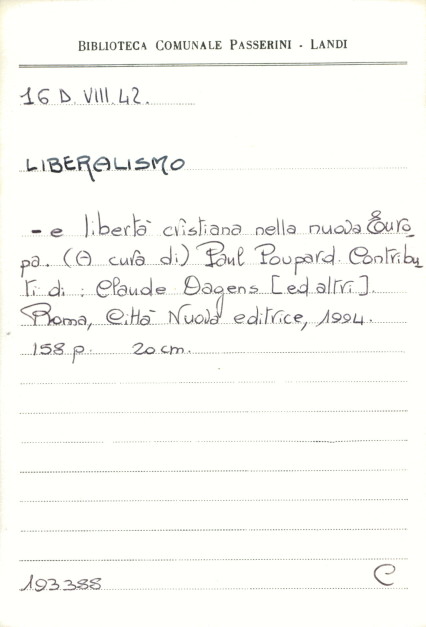 BIBLIOTECA COMUNALE PASSERINI - LANDI
16 D. VIII. 42.
LIBERALISMO
- e libertà cristiana nella nuova Euro
pa. (A cura di) Paul Poupard. Contribu
ti di : Claude Dagens [ed altri].
Roma, Città Nuova editrice, 1994.
158 p. 20 cm.
193388 C